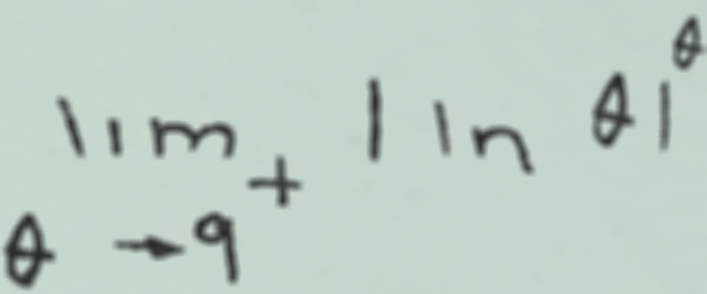 lim_{θ→9^+} |ln θ|^θ